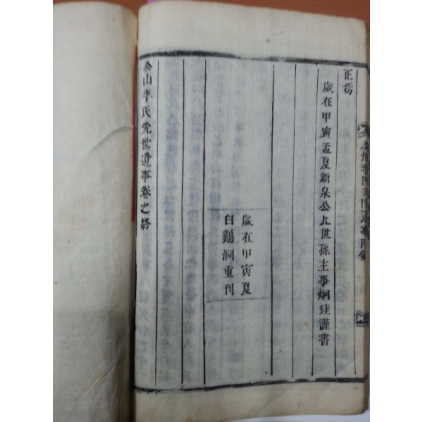 正焉
歲在甲寅孟夏新泉公九世孫主事炯珪謹書
歲在甲寅夏
白鷄洞重刊
公山李氏先世遺事卷之終